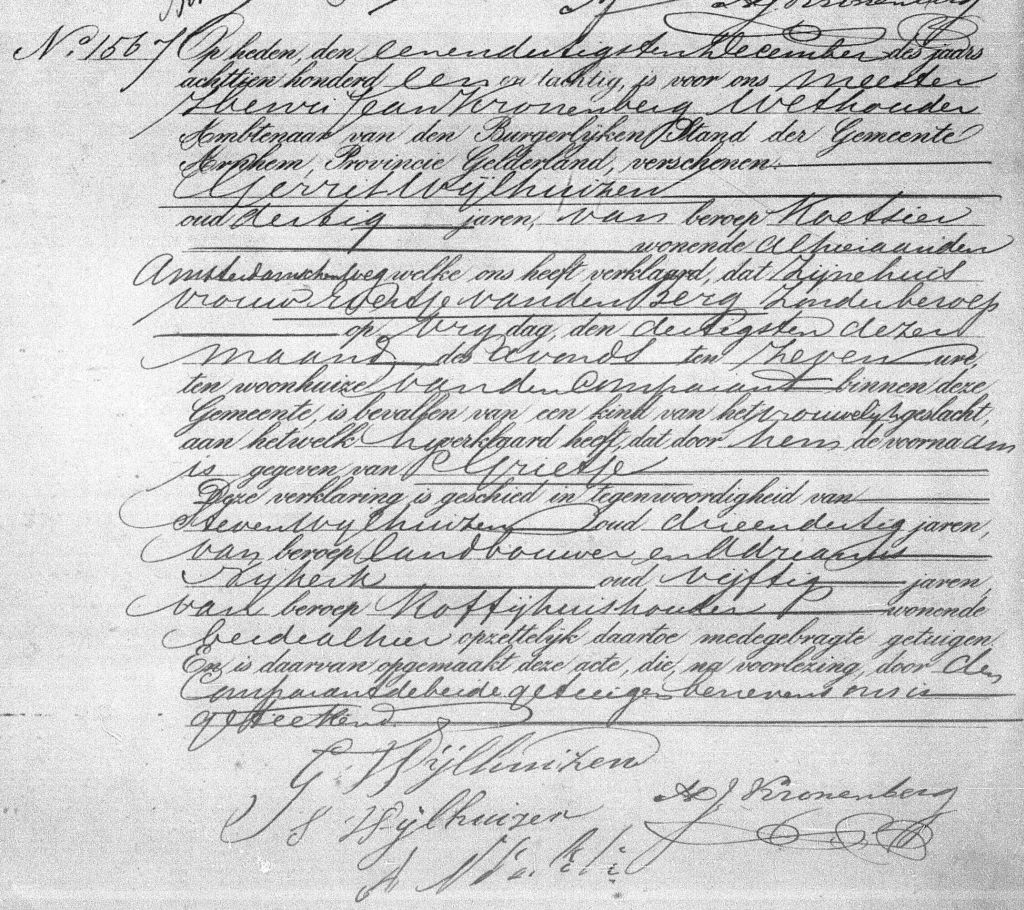 No 1567 Op heden, den eenendertigsten December des jaars
achttien honderd een en tachtig, is voor ons meester
Henri Jean Kronenberg Wethouder
Ambtenaar van den Burgerlijken Stand der Gemeente
Arnhem, Provincie Gelderland, verschenen:
Gerrit Wijlhuizen
oud dertig jaren, van beroep Koetsier
wonende alhier aan den
Amsterdamschenweg welke ons heeft verklaard, dat zijne huis
vrouw Evertje van den Berg zonder beroep
op Vrydag, den dertigsten dezer
maand des avonds ten zeven ure,
ten woonhuize van den Comparant binnen deze
Gemeente, is bevallen van een kind van het vrouwelijk geslacht,
aan hetwelk hij verklaard heeft, dat door hem de voornaam
is gegeven van Grietje
Deze verklaring is geschied in tegenwoordigheid van
Steven Wijlhuizen oud drieendertig jaren,
van beroep landbouwer en Adrianus
Nykerk oud vijftig jaren,
van beroep Koffijhuishouder wonende
beide alhier opzettelijk daartoe medegebragte getuigen.
En is daarvan opgemaakt deze acte, die, na voorlezing, door den
Comparant de beide getuigen benevens ons is
geteekend.
G Wijlhuizen
S Wijlhuizen
HJ Kronenberg